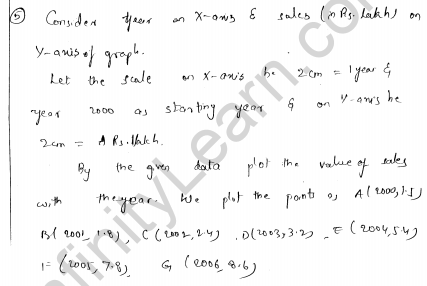 ⑤ Consider year on X-axis & sales (in Rs. Lakh) on
Y-axis of graph.
Let the scale on X-axis be 2cm = 1 year &
year 2000 as starting year & on Y-axis be
2cm = A Rs. Lakh.
By the given data plot the value of sales
with the year. We plot the points as A (2000, 1.5)
B (2001, 1.8), C (2002, 2.4), D (2003, 3.2), E (2004, 5.4)
F (2005, 7.8), G (2006, 8.6)
InfinityLearn.com